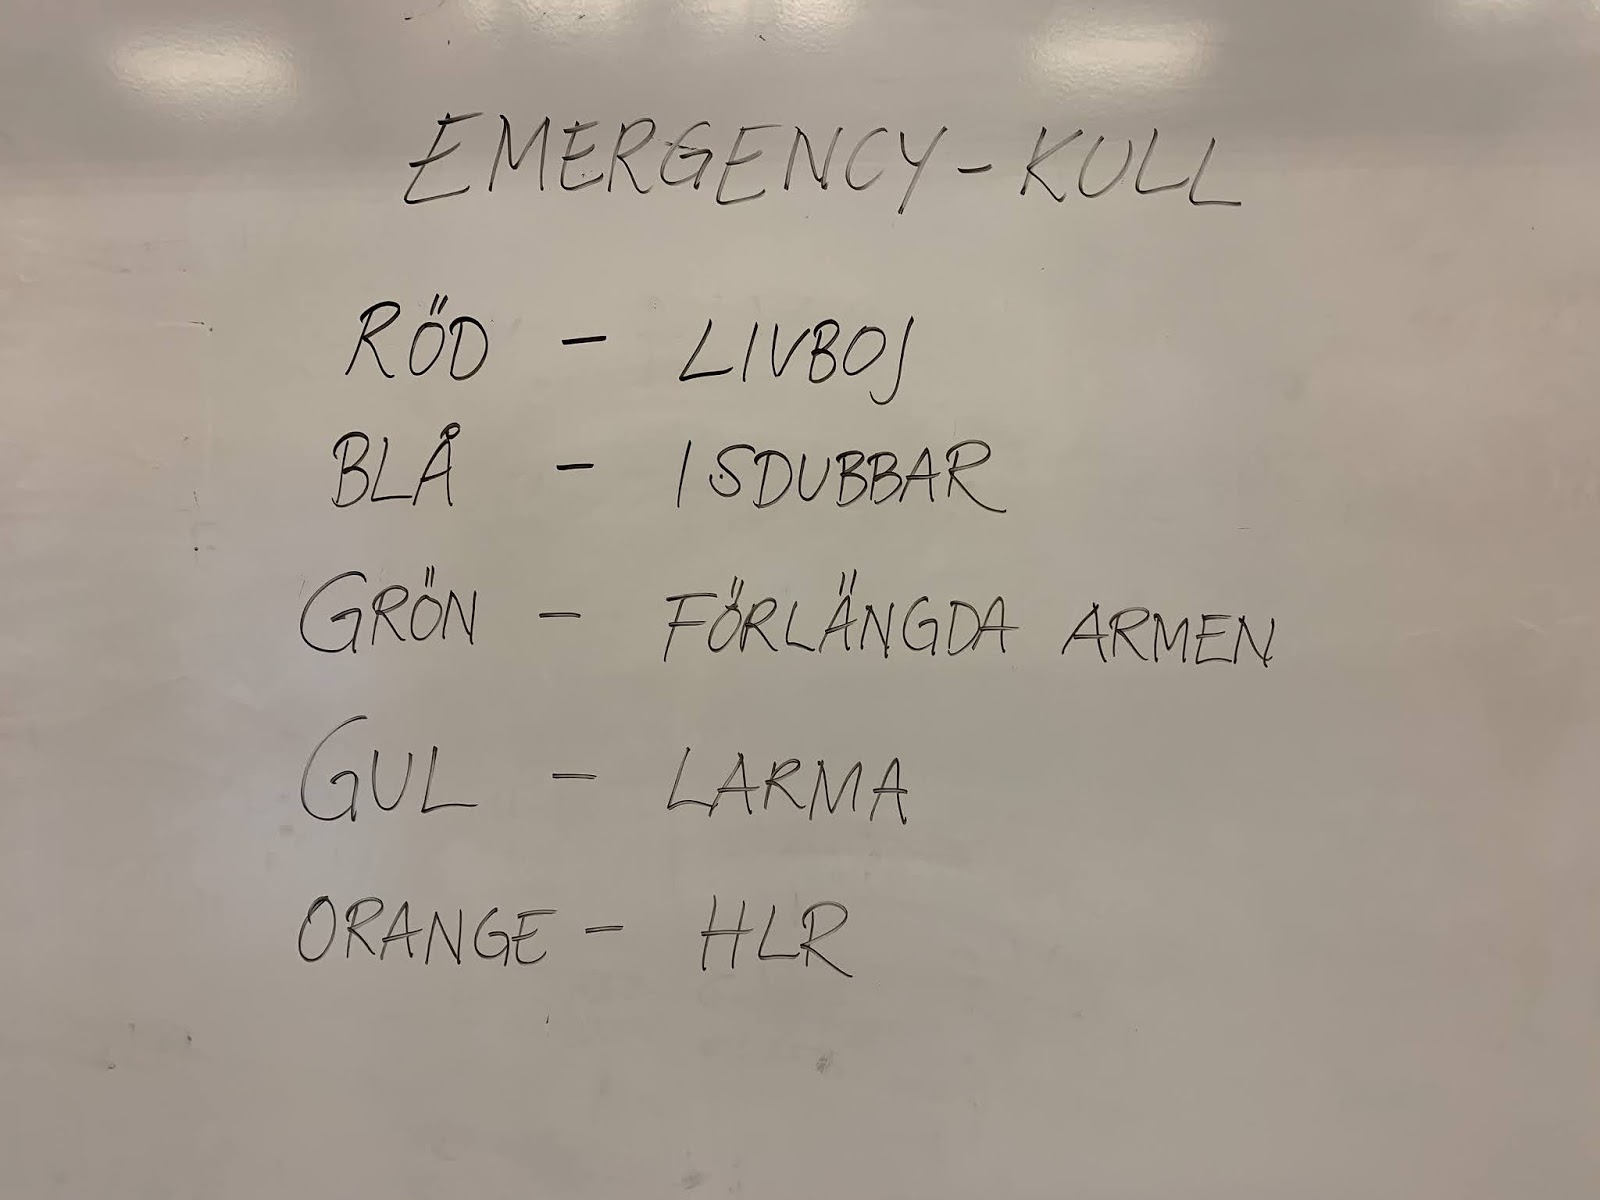 EMERGENCY-KULL
RÖD - LIVBOJ
BLÅ - ISDUBBAR
GRÖN - FÖRLÄNGDA ARMEN
GUL - LARMA
ORANGE - HLR